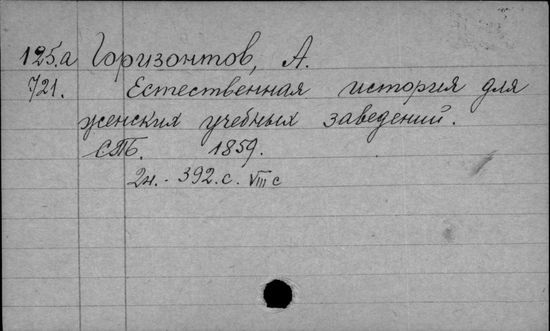 125.а Горизонтов, А.
721. Естественная история для
женских учебных заведений.
СПБ. 1859.
2н. - 392.с. VIII с